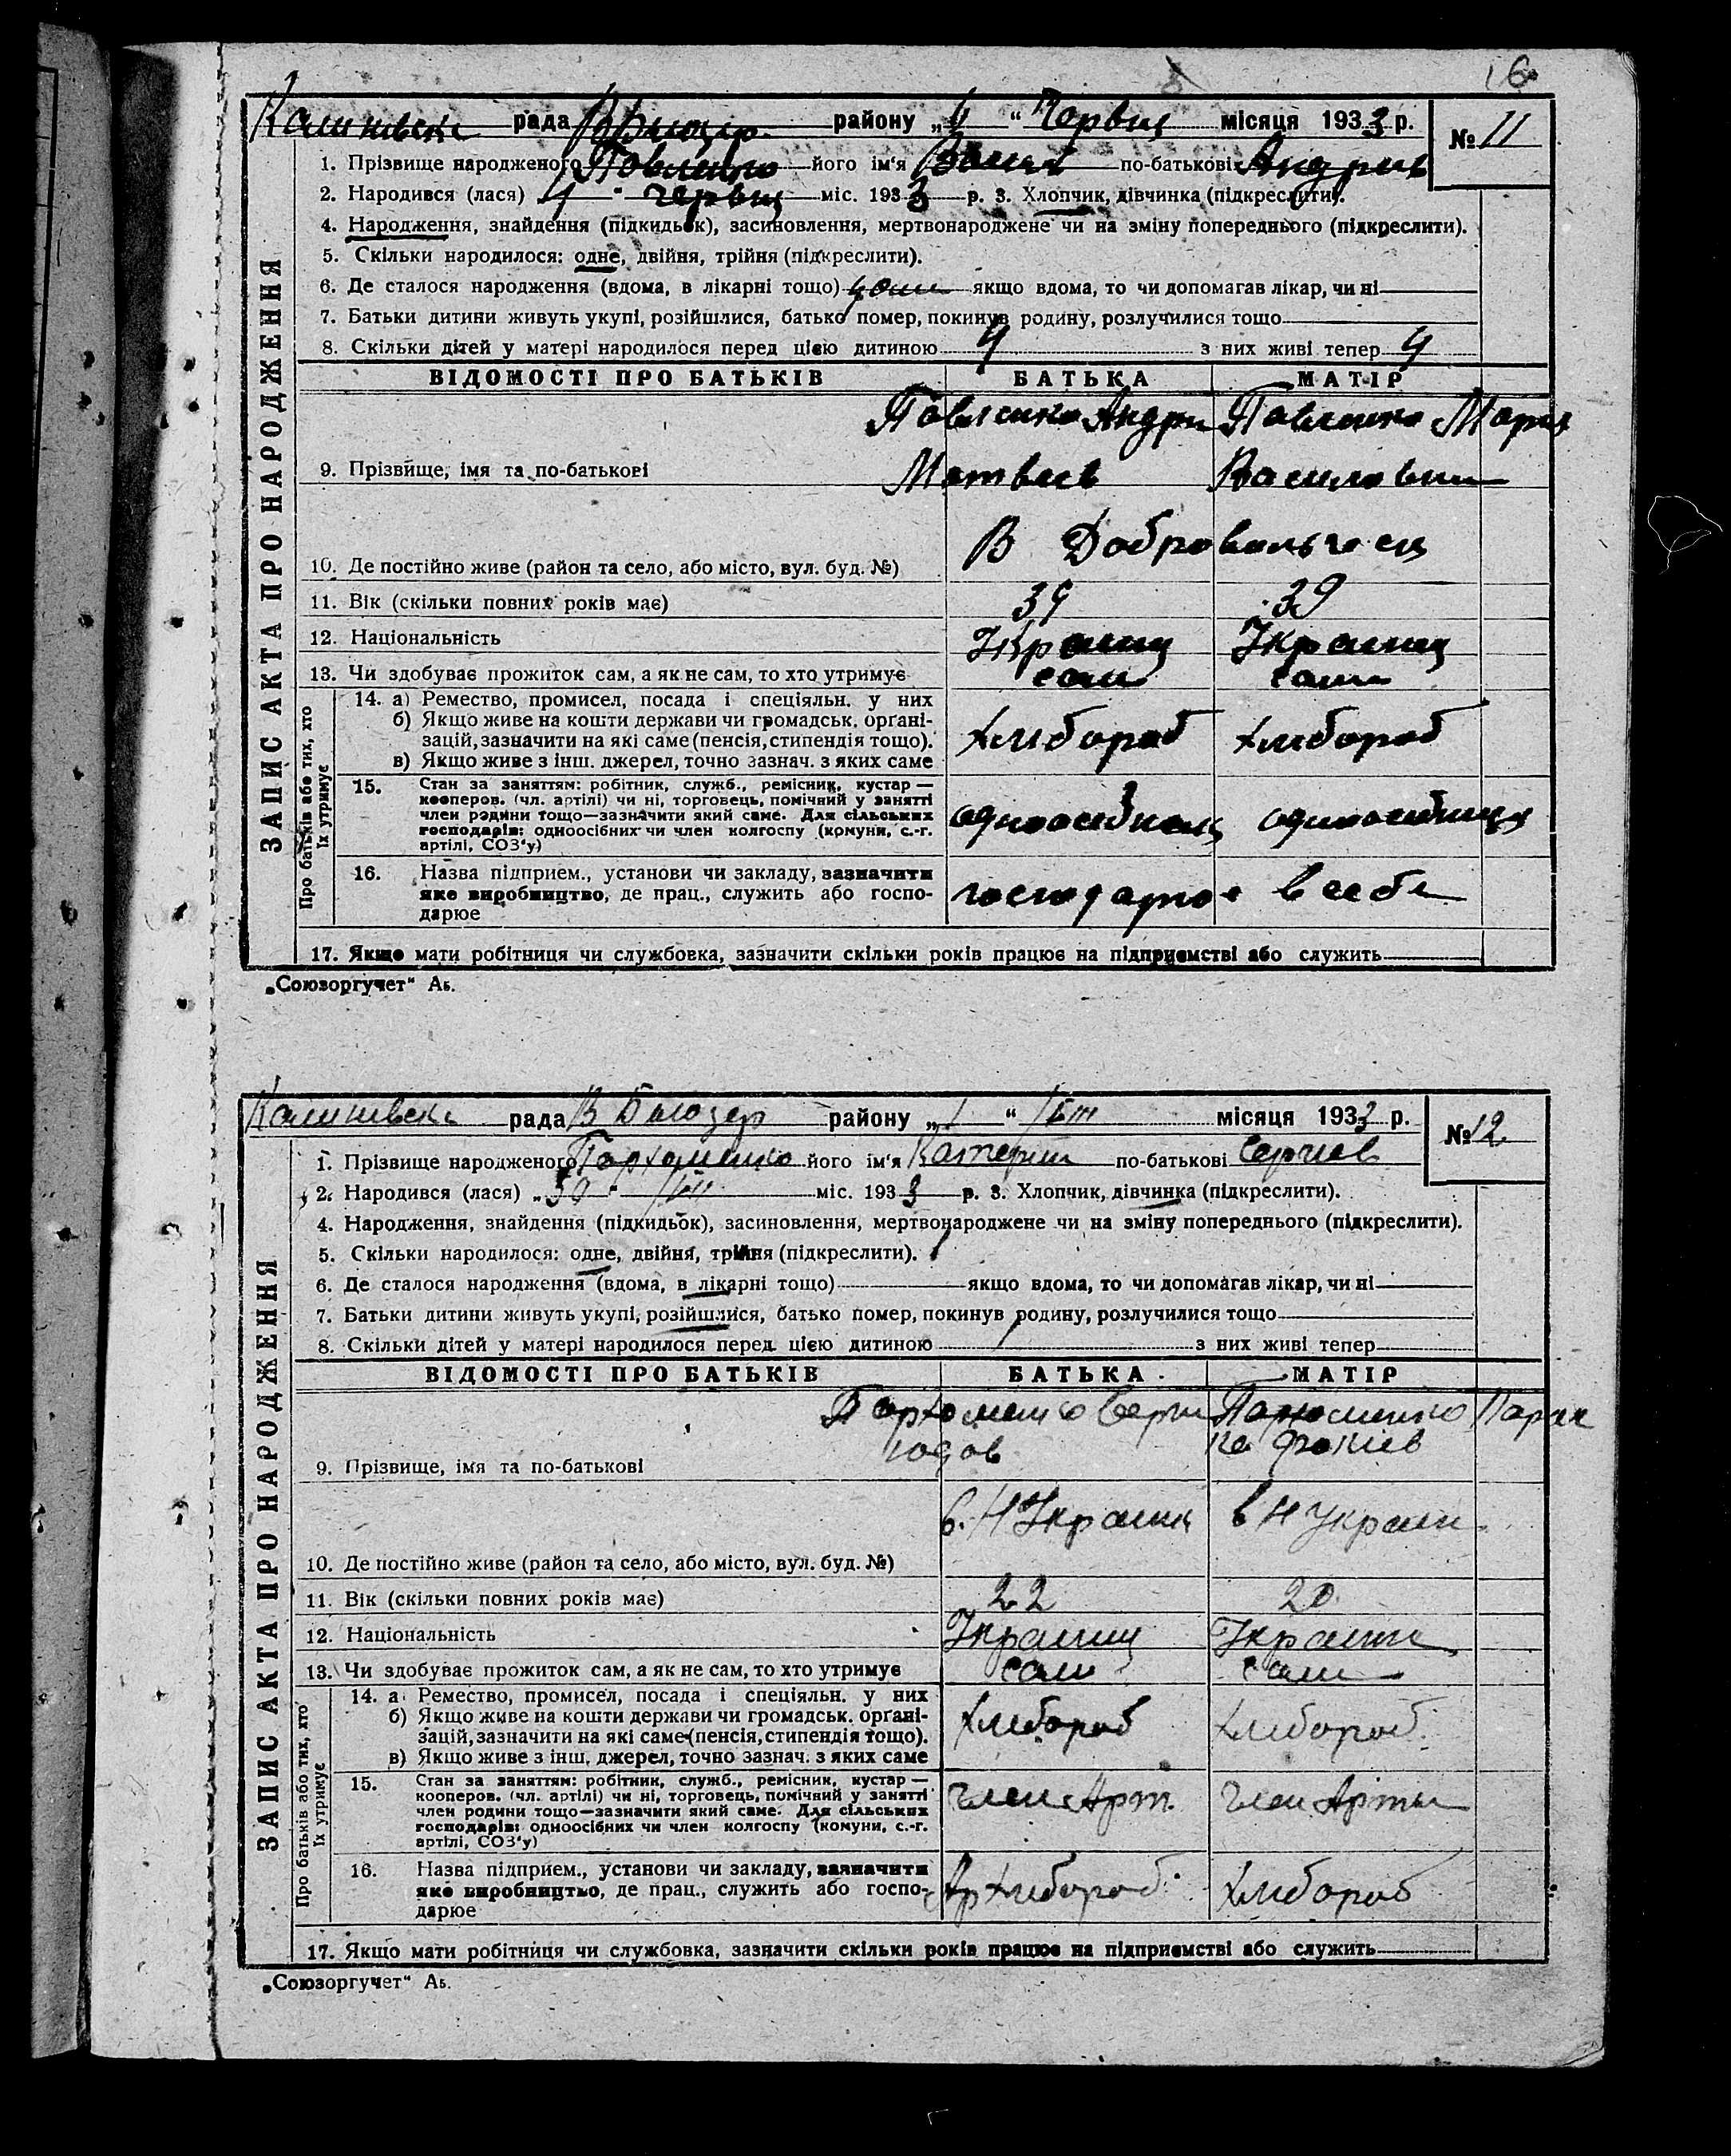 16
Калинівска рада В Білозер. району „4“ Червця місяця 1933 р. № 11
1. Прізвище народженого Павленко його ім'я Васил по-батькові Андрив
2. Народився (лася) 4 " червця міс. 1933 р. 3. Хлопчик, дівчинка (підкреслити).
4. Народження, знайдення (підкидьок), засиновлення, мертвонароджене чи на зміну попереднього (підкреслити).
5. Скільки народилося: одне, двійня, трійня (підкреслити).
6. Де сталося народження (вдома, в лікарні тощо) дома якщо вдома, то чи допомагав лікар, чи ні
7. Батьки дитини живуть укупі, розійшлися, батько помер, покинув родину, розлучилися тощо
8. Скільки дітей у матері народилося перед цією дитиною 4 з них живі тепер 4
ЗАПИС АКТА ПРО НАРОДЖЕННЯ
ВІДОМОСТІ ПРО БАТЬКІВ БАТЬКА МАТІР
Павленко Андри Павленко Мария
9. Прізвище, імя та по-батькові Матвеев Василовны
В Добровольного
10. Де постійно живе (район та село, або місто, вул. буд. №)
11. Вік (скільки повних років має) 39 39
12. Національність Украинц Украинц
13. Чи здобуває прожиток сам, а як не сам, то хто утримує сам сама
Про батьків або тих, хто їх утримує
14. а) Ремество, промисел, посада і спеціяльн. у них
б) Якщо живе на кошти держави чи громадськ. орґані-
зацій, зазначити на які саме (пенсія, стипендія тощо). хлибороб хлибороб
в) Якщо живе з інш. джерел, точно зазнач. з яких саме
15. Стан за заняттям: робітник, служб., ремісник, кустар —
кооперов. (чл. артілі) чи ні, торговець, помічний у занятті
член родини тощо—зазначити який саме. Для сільських
господарів: одноосібних чи член колгоспу (комуни, с.-г. одноосибнец одноосибница
артілі, СОЗ'у)
16. Назва підприєм., установи чи закладу, зазначити
яке виробництво, де прац., служить або госпо- господарює в себе
дарює
17. Якщо мати робітниця чи службовка, зазначити скільки років працює на підприємстві або служить
„Союзоргучет“ Аь.
Калинівска рада В Білозер району „1“ місяця 1933 р. № 12
1. Прізвище народженого Пархоменко його ім'я Катерин по-батькові Сергиев
2. Народився (лася) „30" міс. 1933 р. 3. Хлопчик, дівчинка (підкреслити).
4. Народження, знайдення (підкидьок), засиновлення, мертвонароджене чи на зміну попереднього (підкреслити).
5. Скільки народилося: одне, двійня, трійня (підкреслити).
6. Де сталося народження (вдома, в лікарні тощо) якщо вдома, то чи допомагав лікар, чи ні
7. Батьки дитини живуть укупі, розійшлися, батько помер, покинув родину, розлучилися тощо
8. Скільки дітей у матері народилося перед цією дитиною з них живі тепер
ЗАПИС АКТА ПРО НАРОДЖЕННЯ
ВІДОМОСТІ ПРО БАТЬКІВ БАТЬКА МАТІР
Пархоменко Серги Пархоменко Параc
ка Фокиев
9. Прізвище, імя та по-батькові
в. Н Украина в Н Украин
10. Де постійно живе (район та село, або місто, вул. буд. №)
11. Вік (скільки повних років має) 22 20
12. Національність Украинц Украинк
13. Чи здобуває прожиток сам, а як не сам, то хто утримує сам сама
Про батьків або тих, хто їх утримує
14. а Ремество, промисел, посада і спеціяльн. у них
б) Якщо живе на кошти держави чи громадськ. орґані-
зацій, зазначити на які саме (пенсія, стипендія тощо). хлибороб хлибороб
в) Якщо живе з інш. джерел, точно зазнач. з яких саме
15. Стан за заняттям: робітник, служб., ремісник, кустар —
кооперов. (чл. артілі) чи ні, торговець, помічний у занятті член Арт. член Арты
член родини тощо—зазначити який саме. Для сільських
господарів: одноосібних чи член колгоспу (комуни, с.-г.
артілі, СОЗ'у)
16. Назва підприєм., установи чи закладу, зазначити
яке виробництво, де прац., служить або госпо- Ар хлибороб хлибороб
дарює
17. Якщо мати робітниця чи службовка, зазначити скільки років працює на підприємстві або служить
„Союзоргучет“ Аь.